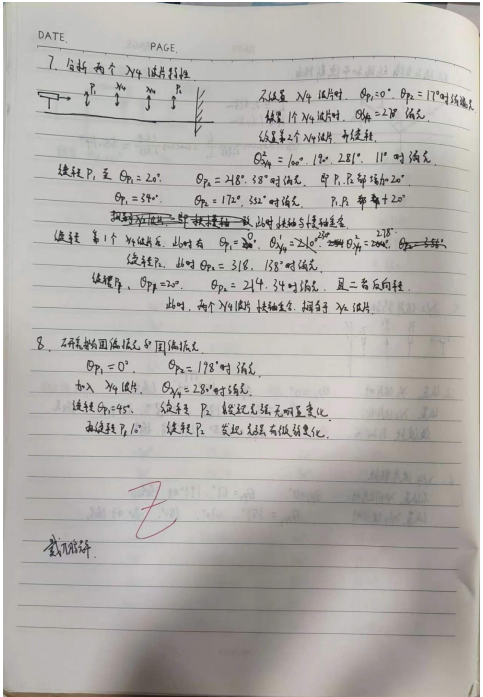 DATE.
PAGE.
7. 分析两个 λ/4 波片特性
P₁ λ/4 λ/4 P₂
不放置 λ/4 波片时. θp₁=0° θp₂=17°时消光
放置1个 λ/4 波片时. θλ/4=278° 消光.
放置第2个 λ/4 波片 并旋转.
θ²λ/4=100°. 190°. 281°. 11° 时消光
旋转 P₁ 至 θp₁=20°. θp₂=218°. 38°时消光. 即 P₁.P₂ 都增加20°
θp₁=340°. θp₂=172°. 352°时消光. P₁.P₂ 都 +20°
此时快轴与慢轴重合.
旋转 第1个 λ/4 波片后. 此时有 θp₁=0°. 278°
旋转P₂. 此时 θp₂=318. 138°时消光.
θp₁=20°. θp₂=214. 34时消光. 且二者反向转
此时, 两个 λ/4 波片快轴重合. 相当于 λ/2 波片
8. 圆偏振光
θp₁=0° θp₂=198°时消光
加入 λ/4 波片. θλ/4=280°时消光.
旋转θp₁=45°. 旋转 P₂ 发现光强无明显变化.
再旋转P₁10° 旋转P₂ 发现光强有微弱变化.